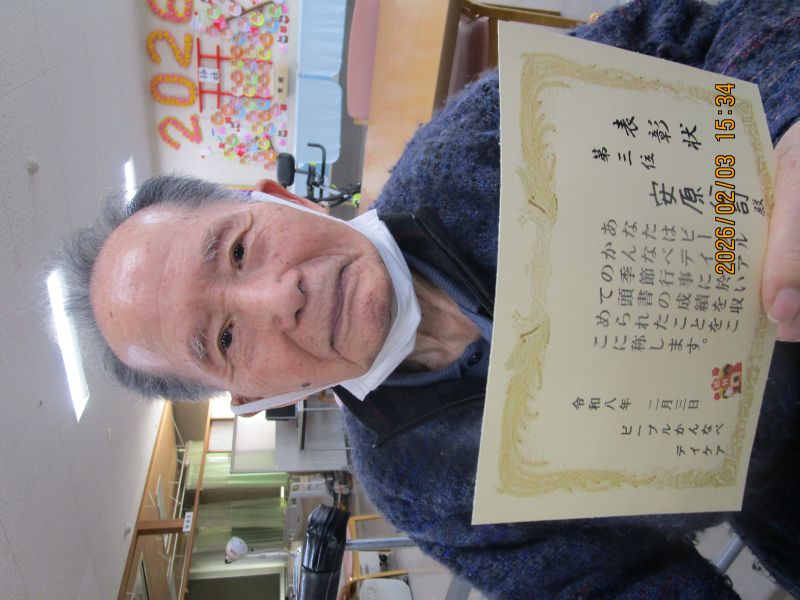 2026
表彰状
第三位
安原
殿
あなたはピープル
かんなべデイケア
の季節の行事に於い
て頭書の成績を収
められたことをこ
こに称します。
令和八年 二月三日
ピープルかんなべ
デイケア
2026/02/03 15:34